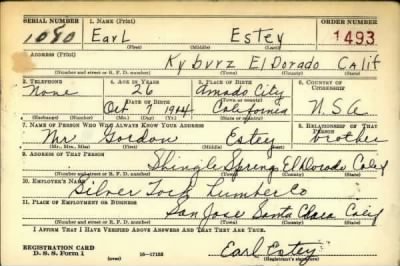 SERIAL NUMBER 1. NAME (Print) ORDER NUMBER
1090 Earl Estey 1493
(First) (Middle) (Last)
2. ADDRESS (Print)
Kyburz El Dorado Calif
(Number and street or R. F. D. number) (Town) (County) (State)
3. TELEPHONE 4. AGE IN YEARS 5. PLACE OF BIRTH 6. COUNTRY OF CITIZENSHIP
None 26 Amado City
DATE OF BIRTH (Town or county)
Oct 7 1914 California U.S.A.
(Exchange) (Number) (Mo.) (Day) (Yr.) (State or country)
7. NAME OF PERSON WHO WILL ALWAYS KNOW YOUR ADDRESS 8. RELATIONSHIP OF THAT PERSON
Mr Gordon Estey brother
(Mr., Mrs., Miss) (First) (Middle) (Last)
9. ADDRESS OF THAT PERSON
Shingle Springs El Dorado Calif
(Number and street or R. F. D. number) (Town) (County) (State)
10. EMPLOYER'S NAME
Silver Lumber Co
11. PLACE OF EMPLOYMENT OR BUSINESS
San Jose Santa Clara Calif
(Number and street or R. F. D. number) (Town) (County) (State)
I AFFIRM THAT I HAVE VERIFIED ABOVE ANSWERS AND THAT THEY ARE TRUE.
REGISTRATION CARD
D. S. S. Form 1 (over) 16—17105 Earl Estey
(Registrant's signature)